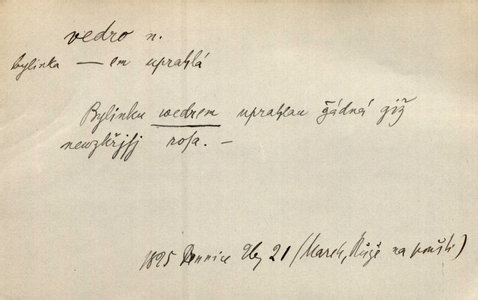 vedro n.
bylinka — em uprahlá
Bylinku wedrem uprahlau žádná giž
newzkřjsj rosa. —
1825 Dennice 21 (Marek, Růže na poušti)